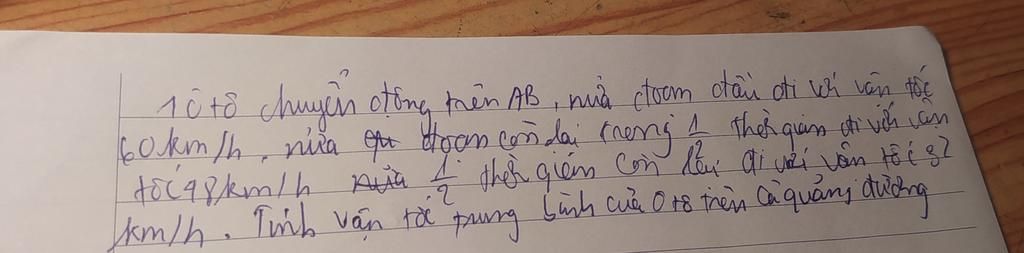 1 ô tô chuyển động trên AB, nửa đoạn đầu đi với vận tốc
60km/h, nửa đoạn còn lại trong 1/2 thời gian đi với vận
tốc 48km/h 1/2 thời gian còn lại đi với vận tốc 32
km/h. Tính vận tốc trung bình của ô tô trên cả quảng đường